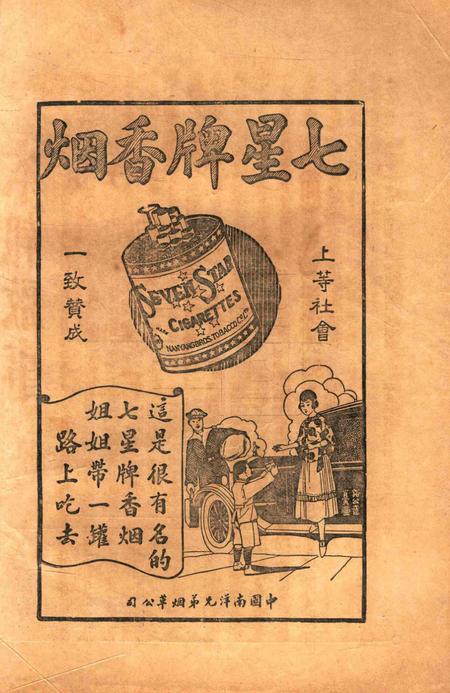 七星牌香烟
上等社會
一致贊成
SEVEN STAR
CIGARETTES
NANYANG BROS. TOBACCO Co. Ltd.
這是很有名的
七星牌香烟
姐姐帶一罐
路上吃去
中國南洋兄弟烟草公司